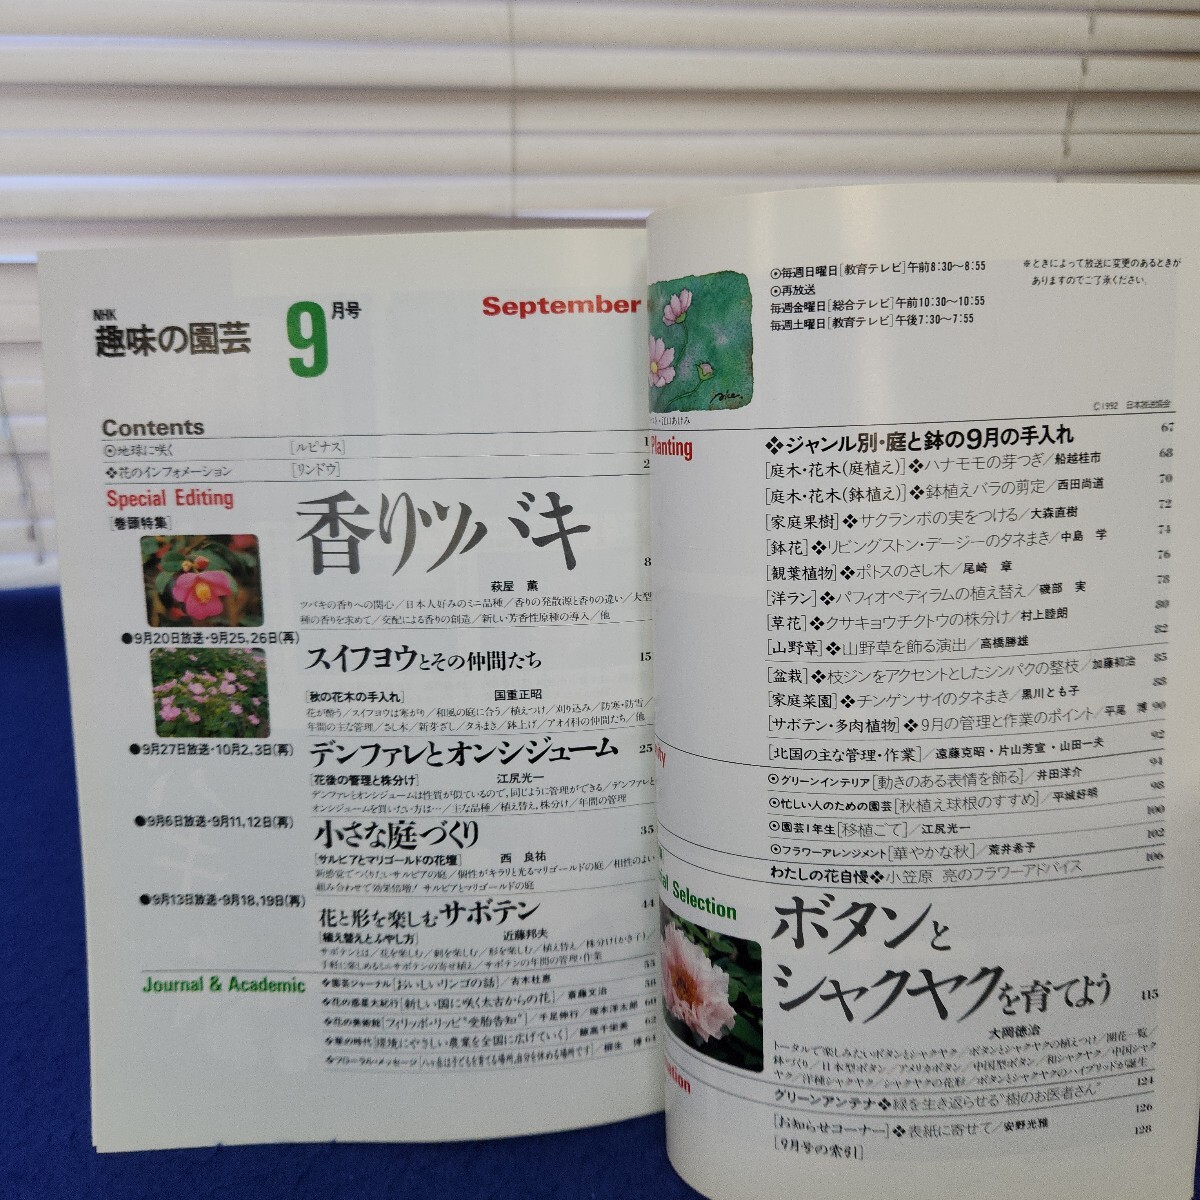 NHK
趣味の園芸 9月号
September
Contents
⦿地球に咲く [ルピナス] 1
❖花のインフォメーション [リンドウ] 2
Special Editing
[巻頭特集]
香りツバキ 8
萩屋 薫
ツバキの香りへの関心/日本人好みのミニ品種/香りの発散源と香りの違い/大型
種の香りを求めて/交配による香りの創造/新しい芳香性原種の導入/他
●9月20日放送・9月25,26日(再)
スイフヨウとその仲間たち 15
[秋の花木の手入れ] 国重正昭
花が酔う/スイフヨウは寒がり/和風の庭に合う/植えつけ/刈り込み/防寒・防雪/
年間の主な管理/さし木/新芽ざし/タネまき/鉢上げ/アオイ科の仲間たち/他
●9月27日放送・10月2,3日(再)
デンファレとオンシジューム 25
[花後の管理と株分け] 江尻光一
デンファレとオンシジュームは性質が似ているので,同じように管理ができる/デンファレと
オンシジュームを買いたい方は…/主な品種/植え替え,株分け/年間の管理
●9月6日放送・9月11,12日(再)
小さな庭づくり 35
[サルビアとマリゴールドの花壇] 西 良祐
新感覚でつくりたいサルビアの庭/個性がキラリと光るマリゴールドの庭/相性のよい
組み合わせで効果倍増! サルビアとマリゴールドの庭
●9月13日放送・9月18,19日(再)
花と形を楽しむサボテン 44
[植え替えとふやし方] 近藤邦夫
サボテンとは/花を楽しむ/刺を楽しむ/形を楽しむ/植え替え/株分け(かき子)/
手軽に楽しめるミニサボテンの寄せ植え/サボテンの年間の管理・作業
Journal & Academic
❖園芸ジャーナル[おいしいリンゴの話]/吉木杜恵 55
❖花の惑星大紀行[新しい国に咲く太古からの花]/斎藤文治 58
❖花の美術館[フィリッポ・リッピ“受胎告知”]/千足伸行/塚本洋太郎 60
❖草の時代[環境にやさしい農業を全国に広げていく]/藤高千栄美 62
❖フローラル・メッセージ[八ヶ岳は子どもを育てる場所,自分を休める場所です]/柳生 博 64
⦿毎週日曜日[教育テレビ]午前8:30〜8:55
⦿再放送
毎週金曜日[総合テレビ]午前10:30〜10:55
毎週土曜日[教育テレビ]午後7:30〜7:55
※ときによって放送に変更のあるときが
ありますのでご了承ください。
・江口あけみ
©1992 日本放送協会
Planting
❖ジャンル別・庭と鉢の9月の手入れ 67
[庭木・花木(庭植え)]❖ハナモモの芽つぎ/船越桂市 68
[庭木・花木(鉢植え)]❖鉢植えバラの剪定/西田尚道 70
[家庭果樹]❖サクランボの実をつける/大森直樹 72
[鉢花]❖リビングストン・デージーのタネまき/中島 学 74
[観葉植物]❖ポトスのさし木/尾崎 章 76
[洋ラン]❖パフィオペディラムの植え替え/磯部 実 78
[草花]❖クサキョウチクトウの株分け/村上睦朗 80
[山野草]❖山野草を飾る演出/高橋勝雄 82
[盆栽]❖枝ジンをアクセントとしたシンパクの整枝/加藤初治 85
[家庭菜園]❖チンゲンサイのタネまき/黒川とも子 88
[サボテン・多肉植物]❖9月の管理と作業のポイント/平尾 博 90
[北国の主な管理・作業]/遠藤克昭・片山芳宣・山田一夫 92
⦿グリーンインテリア[動きのある表情を飾る]/井田洋介 94
⦿忙しい人のための園芸[秋植え球根のすすめ]/平城好明 98
⦿園芸1年生[移植ごて]/江尻光一 100
⦿フラワーアレンジメント[華やかな秋]/荒井希子 102
わたしの花自慢❖小笠原 亮のフラワーアドバイス 106
Selection
ボタンと
シャクヤクを育てよう 115
大岡徳治
トータルで楽しみたいボタンとシャクヤク/ボタンとシャクヤクの植えつけ/開花一覧/
鉢づくり/日本型ボタン/アメリカボタン/中国型ボタン/和シャクヤク/中国シャク
ヤク/洋種シャクヤク/シャクヤクの花形/ボタンとシャクヤクのハイブリッドが誕生
グリーンアンテナ❖緑を生き返らせる“樹のお医者さん” 124
[お知らせコーナー]❖表紙に寄せて/安野光雅 126
[9月号の索引] 128